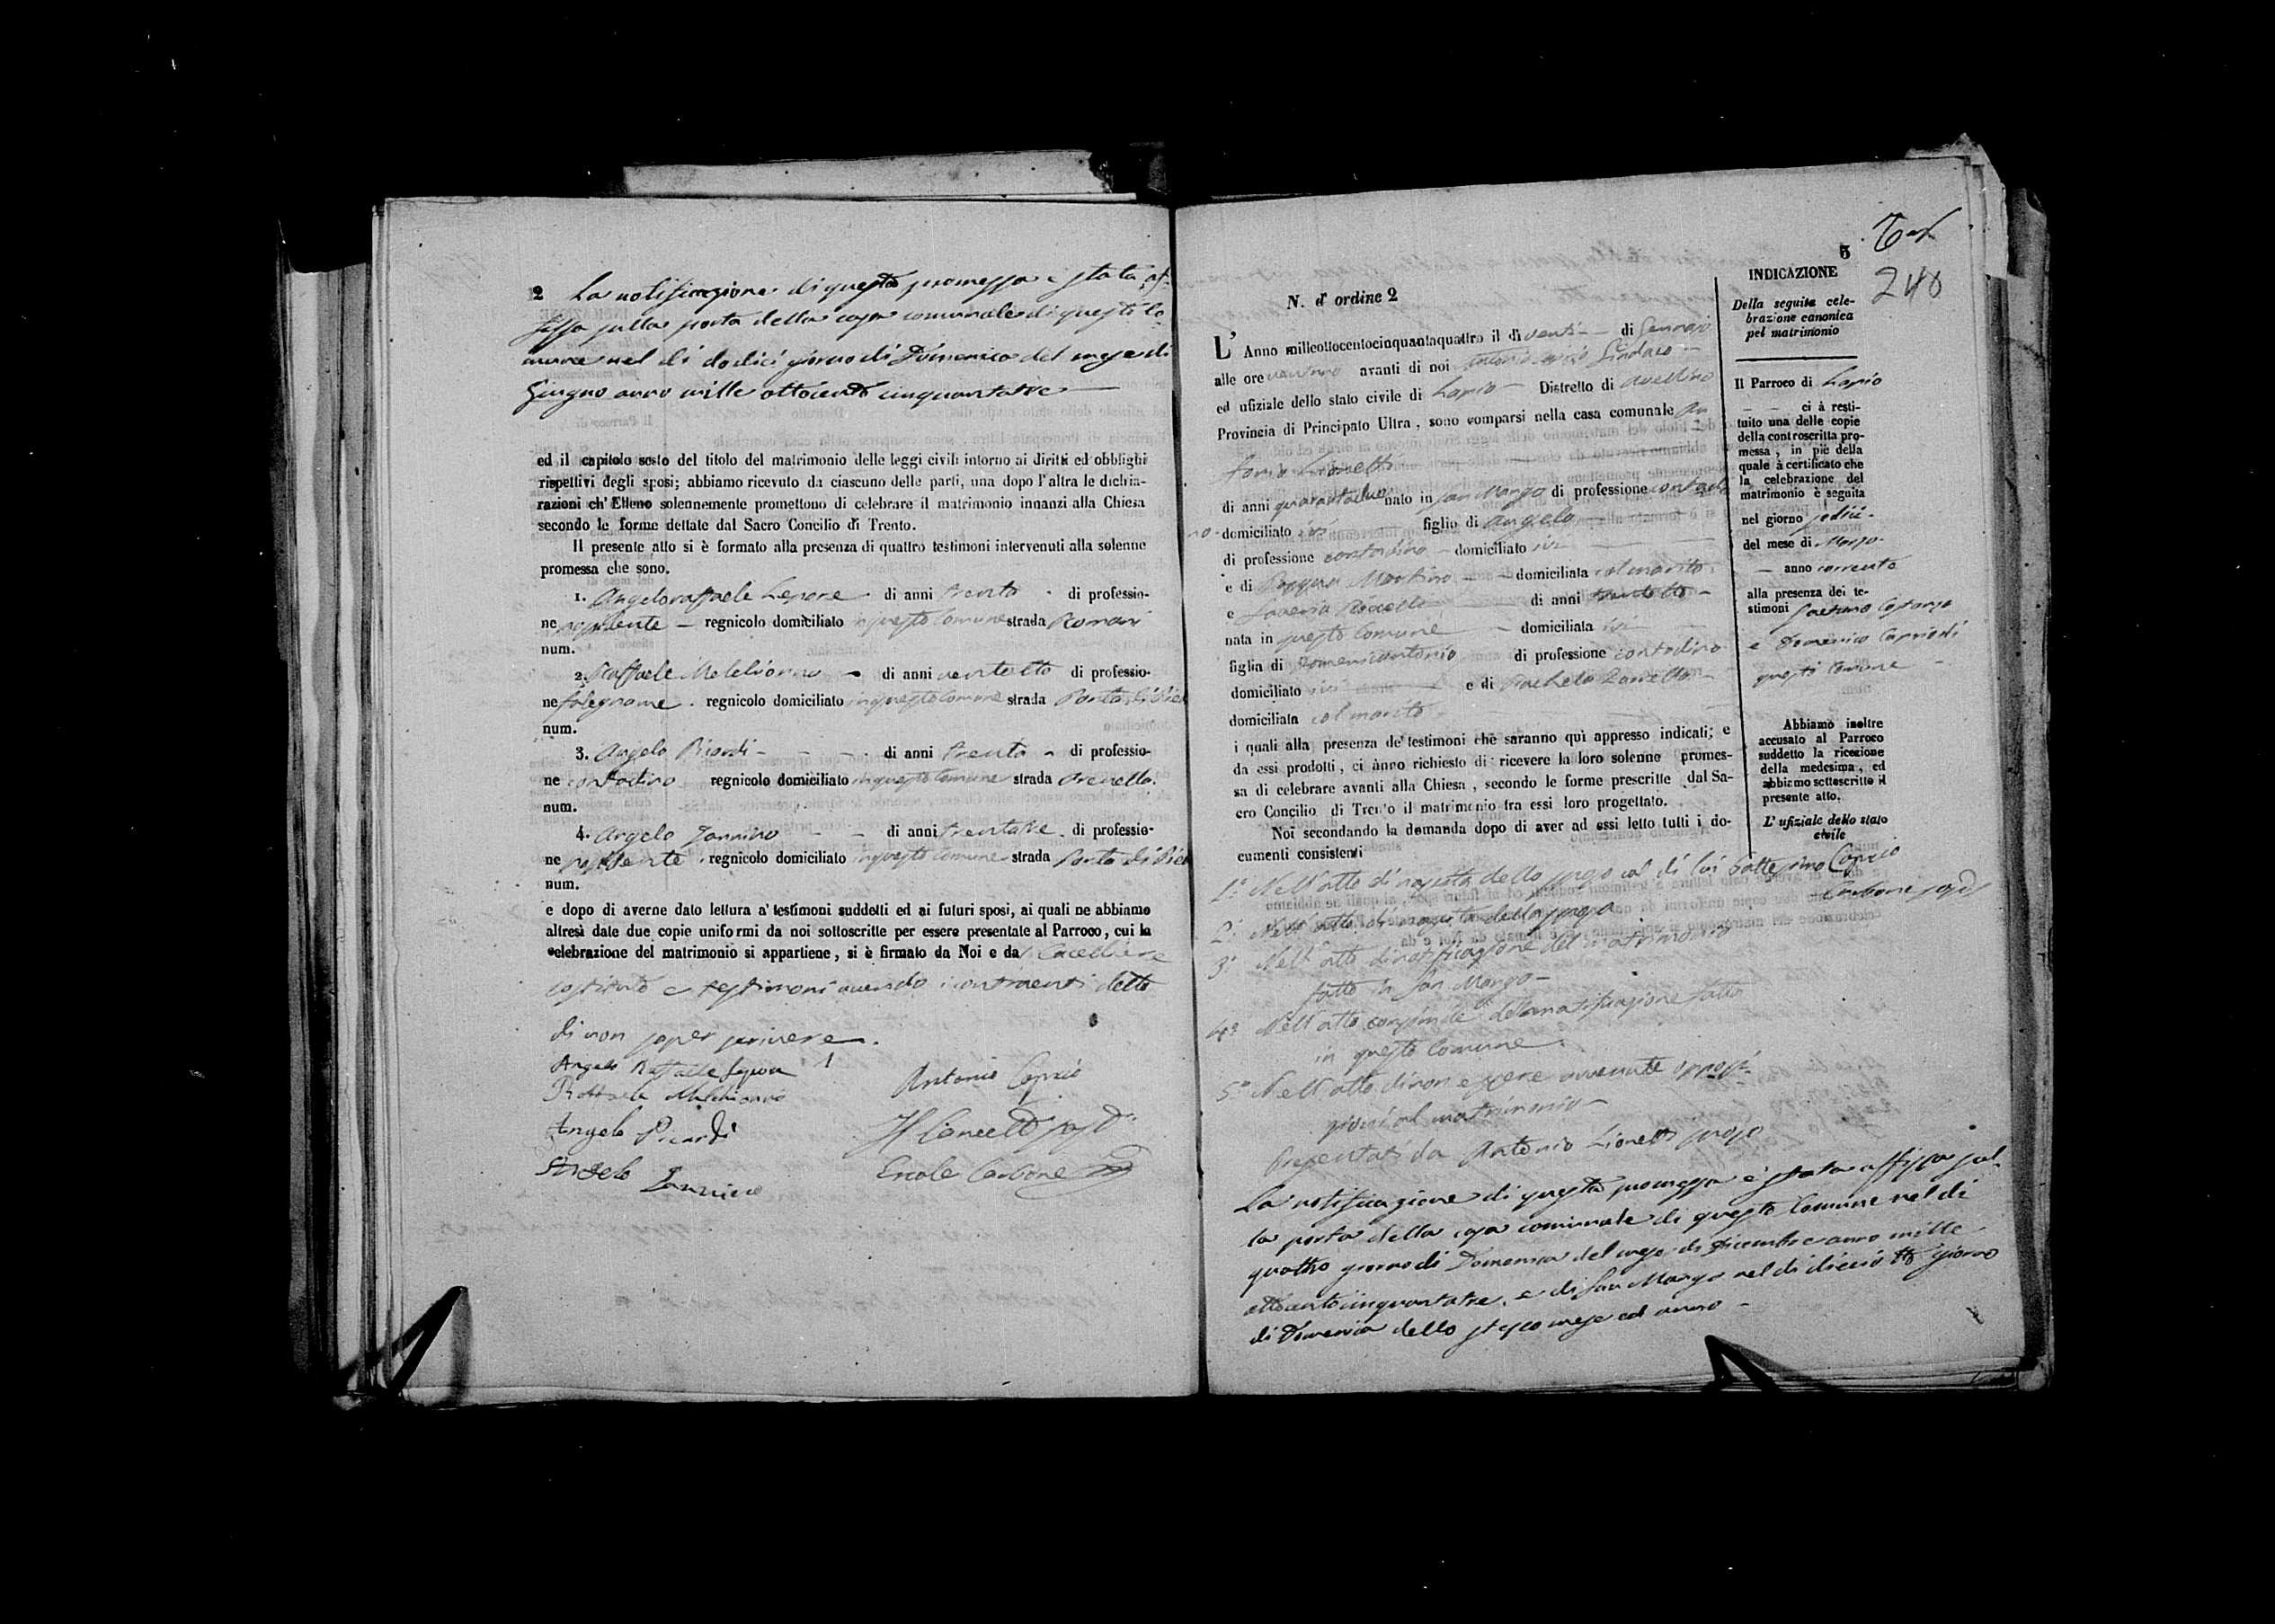 2 La notificazione di questa promessa è stata af-
fissa sulla porta della casa comunale di questo Co-
mune nel dì dodici giorno di Domenica del mese di
Giugno anno mille ottocento cinquantatre
ed il capitolo sesto del titolo del matrimonio delle leggi civili intorno ai diritti ed obblighi
rispettivi degli sposi; abbiamo ricevuto da ciascuno delle parti, una dopo l'altra le dichia-
razioni ch'Elleno solennemente promettono di celebrare il matrimonio innanzi alla Chiesa
secondo le forme dettate dal Sacro Concilio di Trento.
Il presente atto si è formato alla presenza di quattro testimoni intervenuti alla solenne
promessa che sono.
1. Angeloraffaele Lepore di anni trenta di professio-
ne possidente regnicolo domiciliato in questo Comune strada Romani
num.
2. Raffaele Melchionno di anni ventotto di professio-
ne falegname regnicolo domiciliato in questo Comune strada Porta di
num.
3. Angelo Picardi di anni trenta di professio-
ne contadino regnicolo domiciliato in questo Comune strada Arenella.
num.
4. Angelo Iannino di anni trentatre di professio-
ne possidente regnicolo domiciliato in questo Comune strada Porta di
num.
e dopo di averne dato lettura a' testimoni suddetti ed ai futuri sposi, ai quali ne abbiamo
altresì date due copie uniformi da noi sottoscritte per essere presentate al Parroco, cui la
celebrazione del matrimonio si appartiene, si è firmato da Noi e da
sostituto e testimoni avendo i contraenti detto
di non saper scrivere.
Angelo Raffaele Lepore
Antonio Caprio
Raffaele Melchionno
Angelo Picardi
Il Cancell sost
Angelo Iannino
Ercole Carbone
3
248
N. d' ordine 2
L' Anno milleottocentocinquantaquattro il dì venti di Gennaio
alle ore avanti di noi Antonio Caprio Sindaco
ed ufiziale dello stato civile di Lapio Distretto di Avellino
Provincia di Principato Ultra, sono comparsi nella casa comunale An
tonio Lionetti
di anni quarantadue nato in San Mango di professione contadi
no domiciliato ivi figlio di Angelo
di professione contadino domiciliato ivi
e di Martino domiciliata col marito
e Saveria di anni trentotto
nata in questo Comune domiciliata ivi
figlia di Domenicantonio di professione contadino
domiciliato ivi e di Rachela
domiciliata col marito
i quali alla presenza de' testimoni che saranno quì appresso indicati; e
da essi prodotti, ci ànno richiesto di ricevere la loro solenne promes-
sa di celebrare avanti alla Chiesa, secondo le forme prescritte dal Sa-
cro Concilio di Trento il matrimonio fra essi loro progettato.
Noi secondando la domanda dopo di aver ad essi letto tutti i do-
cumenti consistenti
1° Nell'atto di nascita dello sposo
2° Nell'atto di nascita della sposa
3° Nell'atto di notificazione del matrimonio
fatto in San Mango
4° Nell'atto della notificazione fatta
in questo Comune
5° Nell'atto di non essere avvenute opposi-
zioni al matrimonio
Presentati da Antonio Lionetti sposo
La notificazione di questa promessa è stata affissa sul-
la porta della casa comunale di questo Comune nel dì
quattro giorno di Domenica del mese di Dicembre anno mille
ottocentocinquantatre, e di San Mango nel dì dieciotto giorno
di Domenica dello stesso mese ed anno
INDICAZIONE
Della seguita cele-
brazione canonica
pel matrimonio
Il Parroco di Lapio
ci à resti-
tuito una delle copie
della controscritta pro-
messa, in piè della
quale à certificato che
la celebrazione del
matrimonio è seguita
nel giorno sedici
del mese di Marzo
anno corrente
alla presenza dei te-
stimoni Gaetano Costanza
e Domenico Caprioli
questo Comune
Abbiamo inoltre
accusato al Parroco
suddetto la ricezione
della medesima, ed
abbiamo sottoscritto il
presente atto.
L' ufiziale dello stato
civile
Caprio
Carbone sost